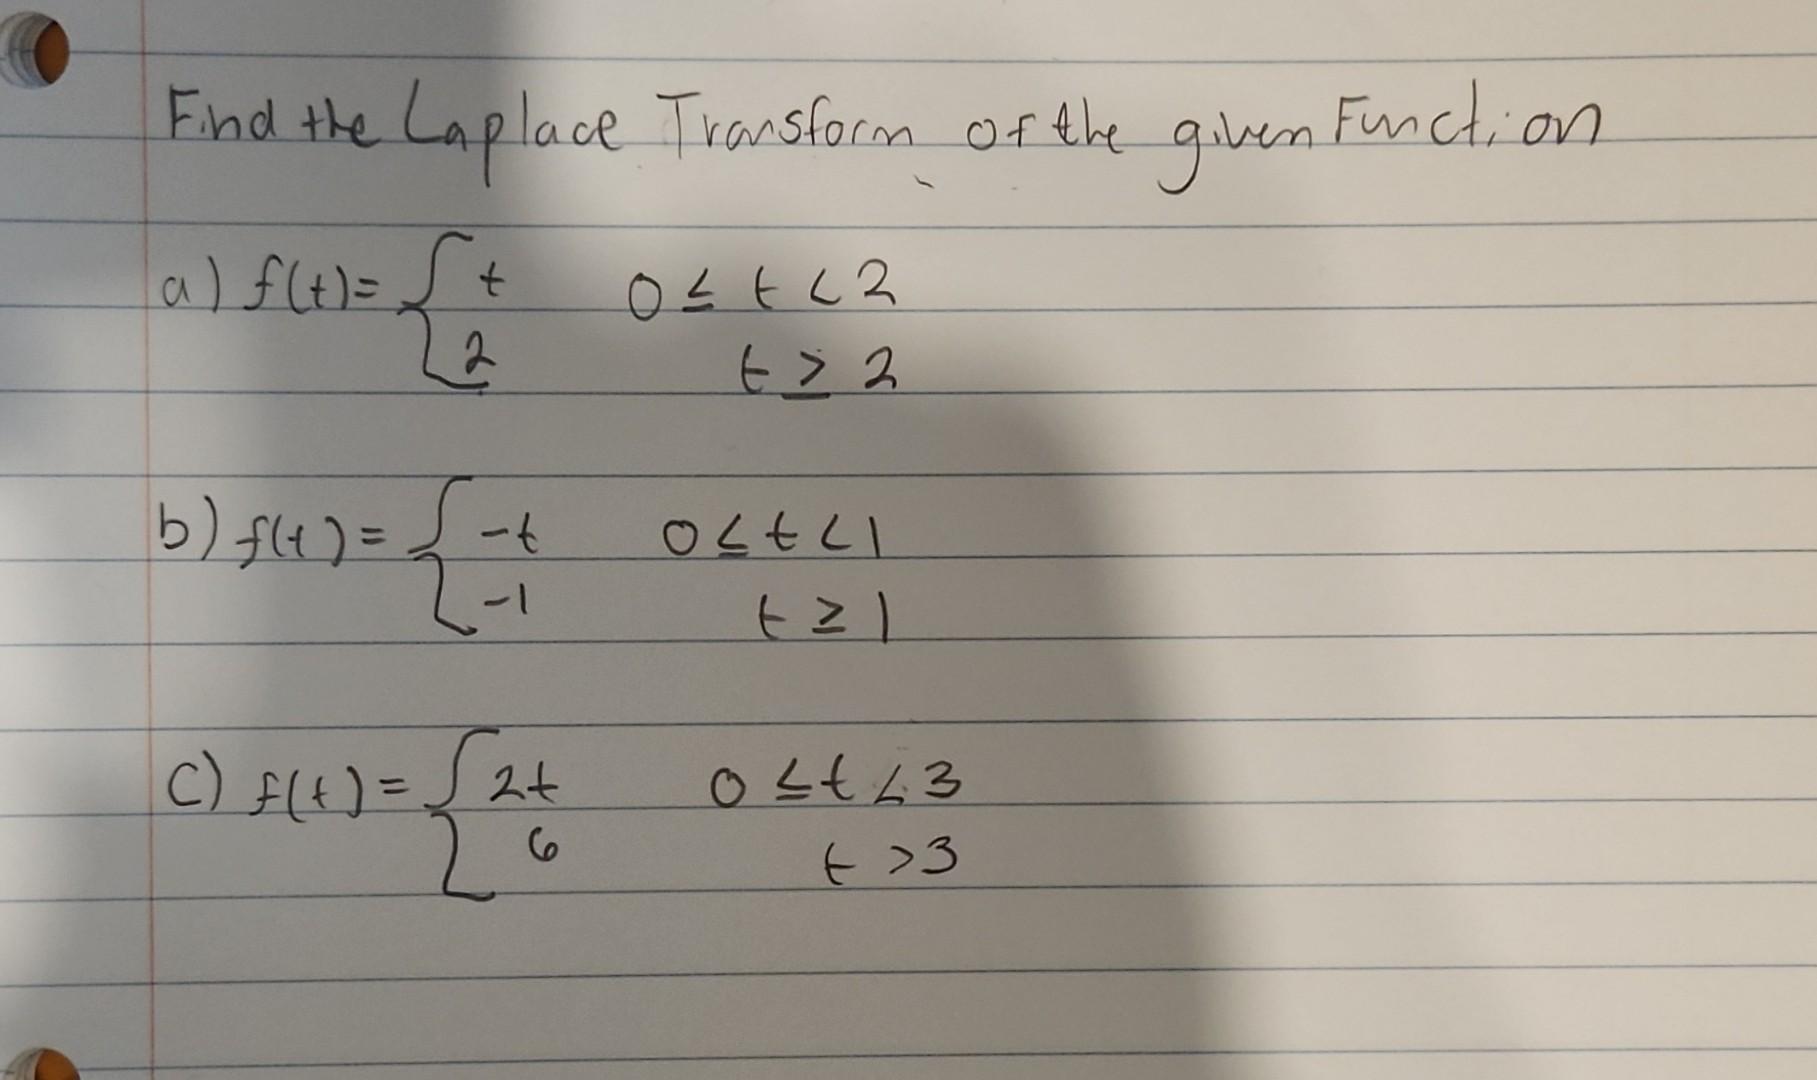 Find the Laplace Transform of the given Function
a) f(t)= { t 0 ≤ t < 2
2 t ≥ 2
b) f(t) = { -t 0 ≤ t < 1
-1 t ≥ 1
c) f(t) = { 2t 0 ≤ t < 3
6 t > 3